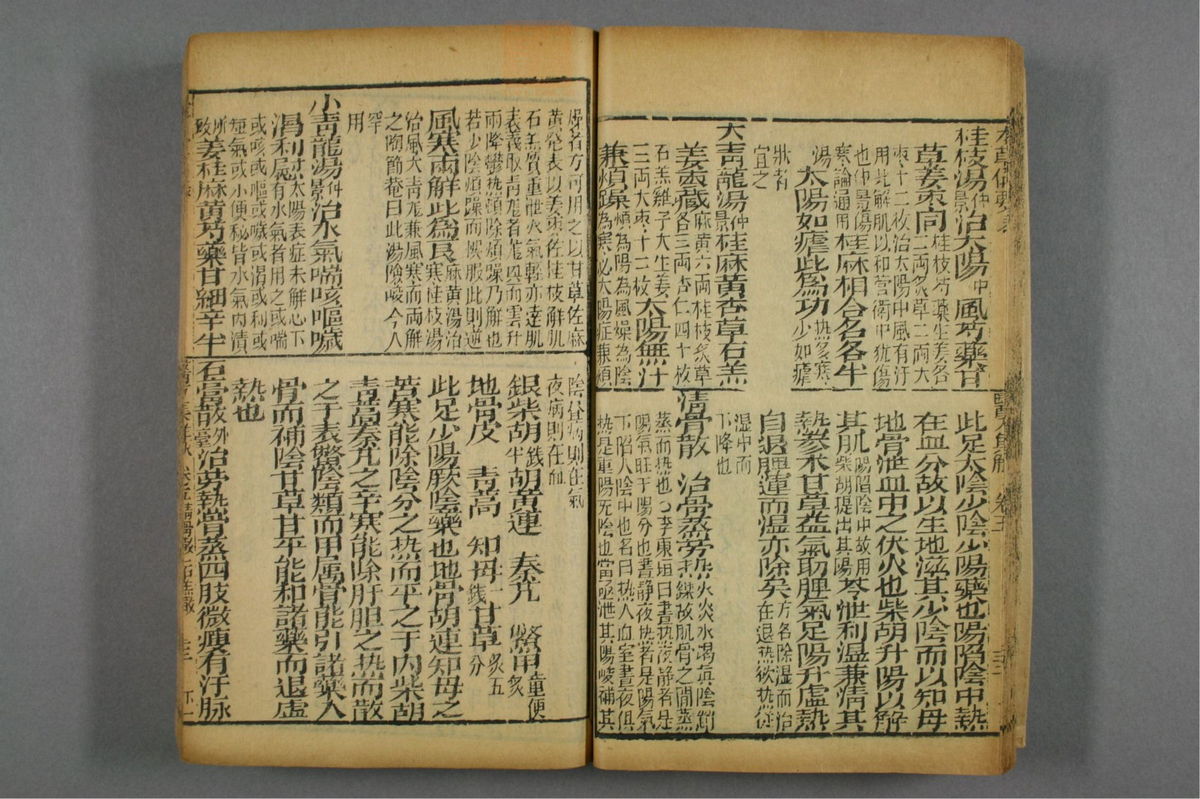 桂枝湯仲景治太陽中風芍藥甘
草姜棗同桂枝芍藥生姜各三兩炙草二兩大
棗十二枚治太陽中風有汗用此解肌以和營衛中猶傷
也仲景傷寒論通用桂麻相合名各半
湯太陽如瘧此為功热多寒少如瘧
狀者宜之
大青龍湯仲景桂麻黃杏草石羔
姜棗藏麻黃六兩桂枝炙草各三兩杏仁四十枚
石羔雞子大生姜三兩大棗十二枚太陽無汗
兼煩躁煩為陽為風燥為陰為寒必太陽症兼煩
此足太陰少陰少陽藥也陽陷陰中熱
在血分故以生地滋其少陰而以知母
地骨泄血中之伏火也柴胡升陽以解
其肌陽陷陰中故用柴胡提出其陽芩泄利湿兼清其
熱參术甘草益氣助脾氣足陽升虛熱
自退脾運而湿亦除矣方名除湿而治在退热欲热從
湿中而下降也
清骨散 治骨蒸勞热火炎水竭真陰銷鑠故肌骨之間蒸
蒸而热也○李東垣曰晝热夜靜者是
陽氣旺于陽分也晝靜夜热者是陽氣
下陷人陰中也名曰热人血室晝夜俱
热是重陽无陰也當亟泄其陽峻補其
醫方集解 卷五
燥者方可用之以甘草佐麻
黃發表以姜棗佐桂枝解肌
石羔質重泄火氣輕亦達肌
表義取青龍者龍興而雲升
雨降鬱热頓除煩躁乃解也
若少陰煩躁而悮服此則逆
風寒兩解此為良麻黃湯治寒桂枝湯
治風大青龍兼風寒而兩解
之陶節菴曰此湯險峻今人
罕用
小青龍湯仲景治水氣喘咳嘔噦
渴利慰太陽表症未解心下有水氣者用之或喘
或咳或嘔或噦或渴或利或
短氣或小便秘皆水氣內漬
所致姜桂麻黃芍藥甘細辛半
陰晝病則在氣
夜病則在血
銀柴胡錢半胡黃連 秦艽 鱉甲童便炙
地骨皮 青蒿 知母一錢甘草炙五分
此足少陽厥陰藥也地骨胡連知母之
苦寒能除陰分之热而平之于內柴胡
青蒿秦艽之辛寒能除肝胆之热而散
之于表鱉陰類而甲属骨能引諸藥入
骨而補陰甘草甘平能和諸藥而退虛
熱也
石膏散外臺治勞熱骨蒸四肢微瘦有汗脉